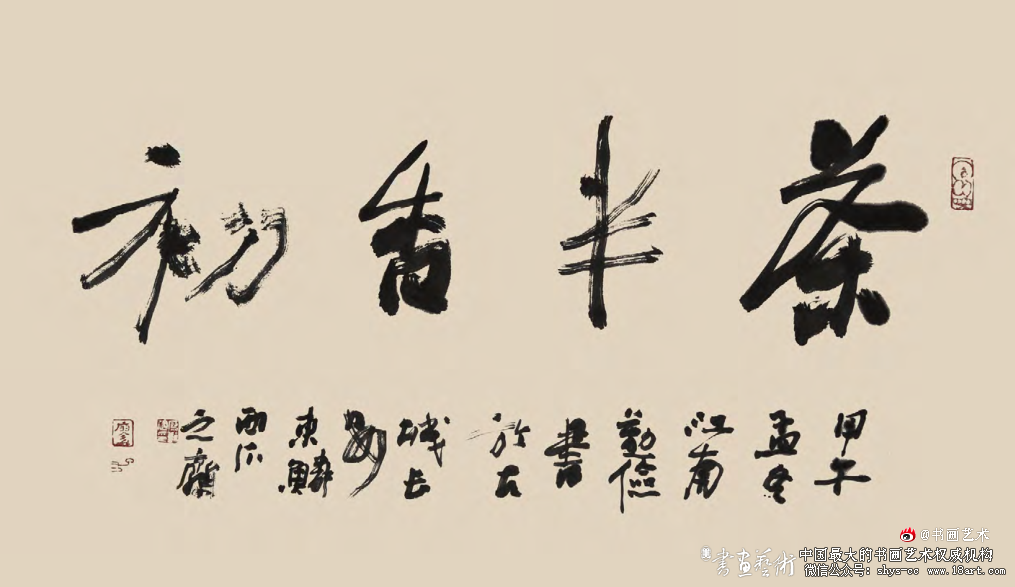 茶半香初
甲午
孟冬
江南
勤俭
書
於古
城长
沙
東鄰
之廬
@书画艺术
書畫藝術
中国最大的书画艺术权威机构
微信公众号: shys-cc www.18art.com